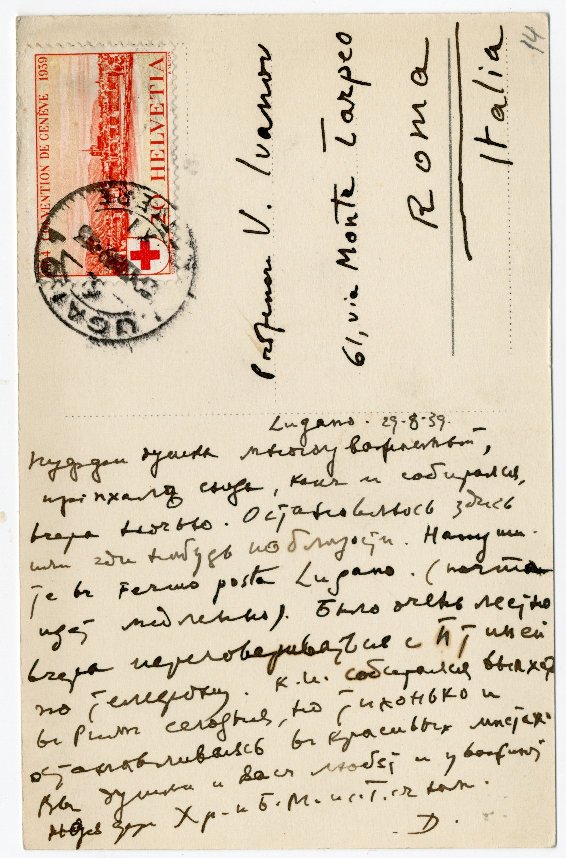 14
4 CONVENTION DE GENÈVE 1939
20 HELVETIA
LUGANO
Professore V. Ivanov
61, via Monte Tarpeo
Roma
Italia
Lugano. 29-8-39.
душка многоуважаемый,
пріѣхалъ сюда, какъ и собирался,
вчера ночью. Остановлюсь здѣсь
или гдѣ нибудь поблизости. Напиши-
те въ fermo posta Lugano. (почта
идетъ медленно). Было очень лестно
вчера переговариваться с
по телефону. К.И. собирался выѣхать
въ Римъ сегодня, но тихонько и
останавливаясь въ красивыхъ мѣстахъ.
Вы душка и васъ любятъ и
Хр. и Б.М. и с.т.
D.